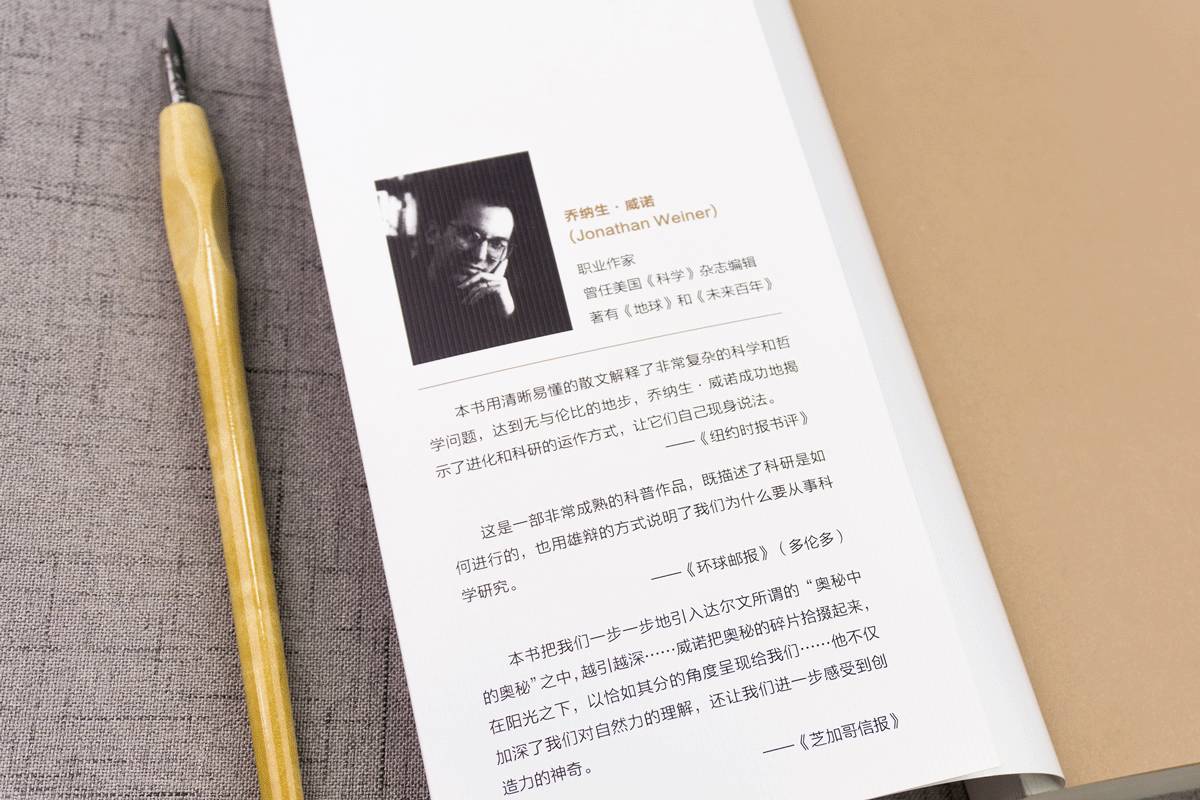 乔纳生·威诺
（Jonathan Weiner）
职业作家
曾任美国《科学》杂志编辑
著有《地球》和《未来百年》
本书用清晰易懂的散文解释了非常复杂的科学和哲
学问题，达到无与伦比的地步，乔纳生·威诺成功地揭
示了进化和科研的运作方式，让它们自己现身说法。
——《纽约时报书评》
这是一部非常成熟的科普作品，既描述了科研是如
何进行的，也用雄辩的方式说明了我们为什么要从事科
学研究。
——《环球邮报》（多伦多）
本书把我们一步一步地引入达尔文所谓的“奥秘中
的奥秘”之中，越引越深……威诺把奥秘的碎片拾掇起来，
在阳光之下，以恰如其分的角度呈现给我们……他不仅
加深了我们对自然力的理解，还让我们进一步感受到创
造力的神奇。
——《芝加哥信报》